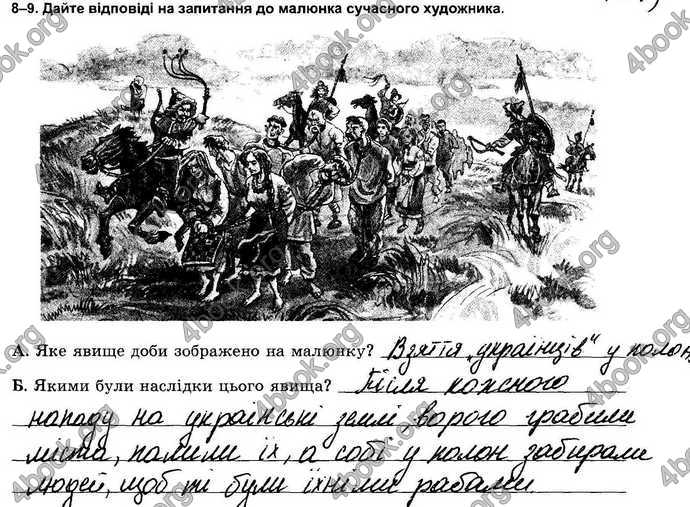 8–9. Дайте відповіді на запитання до малюнка сучасного художника.
А. Яке явище доби зображено на малюнку? Взяття „українців" у полон
Б. Якими були наслідки цього явища? Після кожного
нападу на українські землі ворого грабили
міста, палили їх, а собі у полон забирали
людей, щоб ті були їхніми рабами.
4book.org